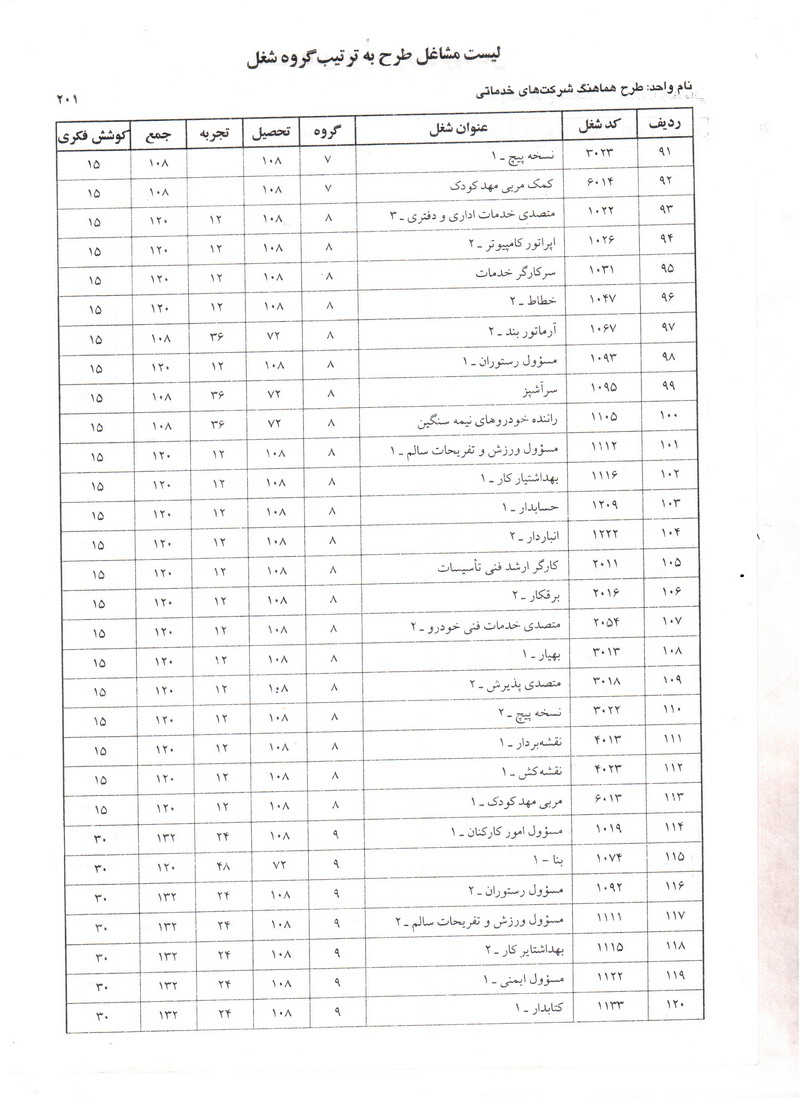 لیست مشاغل طرح به ترتیب گروه شغل
نام واحد: طرح هماهنگ شرکت‌های خدماتی
۲۰۱
ردیف کد شغل عنوان شغل گروه تحصیل تجربه جمع کوشش فکری
۹۱ ۳۰۲۳ نسخه پیچ ـ ۱ ۷ ۱۰۸ ۱۰۸ ۱۵
۹۲ ۶۰۱۴ کمک مربی مهد کودک ۷ ۱۰۸ ۱۰۸ ۱۵
۹۳ ۱۰۲۲ متصدی خدمات اداری و دفتری ـ ۳ ۸ ۱۰۸ ۱۲ ۱۲۰ ۱۵
۹۴ ۱۰۲۶ اپراتور کامپیوتر ـ ۲ ۸ ۱۰۸ ۱۲ ۱۲۰ ۱۵
۹۵ ۱۰۳۱ سرکارگر خدمات ۸ ۱۰۸ ۱۲ ۱۲۰ ۱۵
۹۶ ۱۰۴۷ خطاط ـ ۲ ۸ ۱۰۸ ۱۲ ۱۲۰ ۱۵
۹۷ ۱۰۶۷ آرماتور بند ـ ۲ ۸ ۷۲ ۳۶ ۱۰۸ ۱۵
۹۸ ۱۰۹۳ مسؤول رستوران ـ ۱ ۸ ۱۰۸ ۱۲ ۱۲۰ ۱۵
۹۹ ۱۰۹۵ سرآشپز ۸ ۷۲ ۳۶ ۱۰۸ ۱۵
۱۰۰ ۱۱۰۵ راننده خودروهای نیمه سنگین ۸ ۷۲ ۳۶ ۱۰۸ ۱۵
۱۰۱ ۱۱۱۲ مسؤول ورزش و تفریحات سالم ـ ۱ ۸ ۱۰۸ ۱۲ ۱۲۰ ۱۵
۱۰۲ ۱۱۱۶ بهداشتیار کار ـ ۱ ۸ ۱۰۸ ۱۲ ۱۲۰ ۱۵
۱۰۳ ۱۲۰۹ حسابدار ـ ۱ ۸ ۱۰۸ ۱۲ ۱۲۰ ۱۵
۱۰۴ ۱۲۲۲ انباردار ـ ۲ ۸ ۱۰۸ ۱۲ ۱۲۰ ۱۵
۱۰۵ ۲۰۱۱ کارگر ارشد فنی تأسیسات ۸ ۱۰۸ ۱۲ ۱۲۰ ۱۵
۱۰۶ ۲۰۱۶ برقکار ـ ۲ ۸ ۱۰۸ ۱۲ ۱۲۰ ۱۵
۱۰۷ ۲۰۵۴ متصدی خدمات فنی خودرو ـ ۲ ۸ ۱۰۸ ۱۲ ۱۲۰ ۱۵
۱۰۸ ۳۰۱۳ بهیار ـ ۱ ۸ ۱۰۸ ۱۲ ۱۲۰ ۱۵
۱۰۹ ۳۰۱۸ متصدی پذیرش ـ ۲ ۸ ۱۰۸ ۱۲ ۱۲۰ ۱۵
۱۱۰ ۳۰۲۲ نسخه پیچ ـ ۲ ۸ ۱۰۸ ۱۲ ۱۲۰ ۱۵
۱۱۱ ۴۰۱۳ نقشه‌بردار ـ ۱ ۸ ۱۰۸ ۱۲ ۱۲۰ ۱۵
۱۱۲ ۴۰۲۳ نقشه‌کش ـ ۱ ۸ ۱۰۸ ۱۲ ۱۲۰ ۱۵
۱۱۳ ۶۰۱۳ مربی مهد کودک ـ ۱ ۸ ۱۰۸ ۱۲ ۱۲۰ ۱۵
۱۱۴ ۱۰۱۹ مسؤول امور کارکنان ـ ۱ ۹ ۱۰۸ ۲۴ ۱۳۲ ۳۰
۱۱۵ ۱۰۷۴ بنا - ۱ ۹ ۷۲ ۴۸ ۱۲۰ ۳۰
۱۱۶ ۱۰۹۲ مسؤول رستوران ـ ۲ ۹ ۱۰۸ ۲۴ ۱۳۲ ۳۰
۱۱۷ ۱۱۱۱ مسؤول ورزش و تفریحات سالم ـ ۲ ۹ ۱۰۸ ۲۴ ۱۳۲ ۳۰
۱۱۸ ۱۱۱۵ بهداشتایر کار ـ ۲ ۹ ۱۰۸ ۲۴ ۱۳۲ ۳۰
۱۱۹ ۱۱۲۲ مسؤول ایمنی ـ ۱ ۹ ۱۰۸ ۲۴ ۱۳۲ ۳۰
۱۲۰ ۱۱۳۳ کتابدار ـ ۱ ۹ ۱۰۸ ۲۴ ۱۳۲ ۳۰